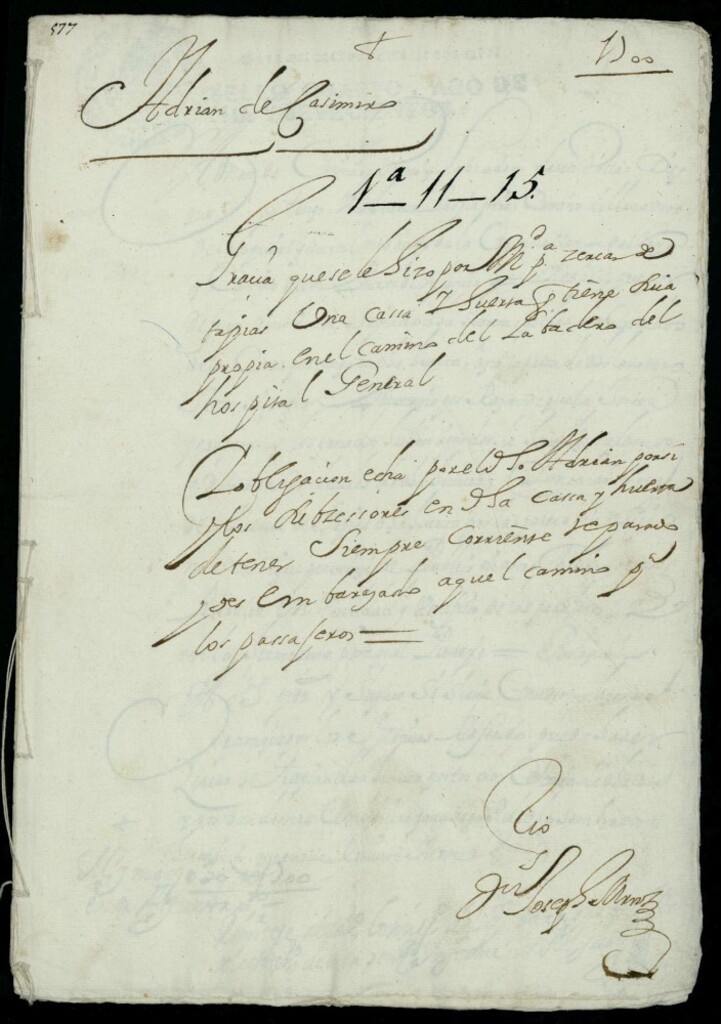 577
+
1700
Adrian de Casimiro
1ª 11-15.
Gracia que se le hizo por Md pª zercar de
tapias Una cassa y huerta q tiene suia
propia en el camino del Labadero del
hospital General
Y obligacion echa por el dho Adrian por si
y los subzessores en dha cassa y huerta
de tener siempre corriente reparado
y des embarazado aquel camino pª
los passajeros =
Srio
Dn Joseph